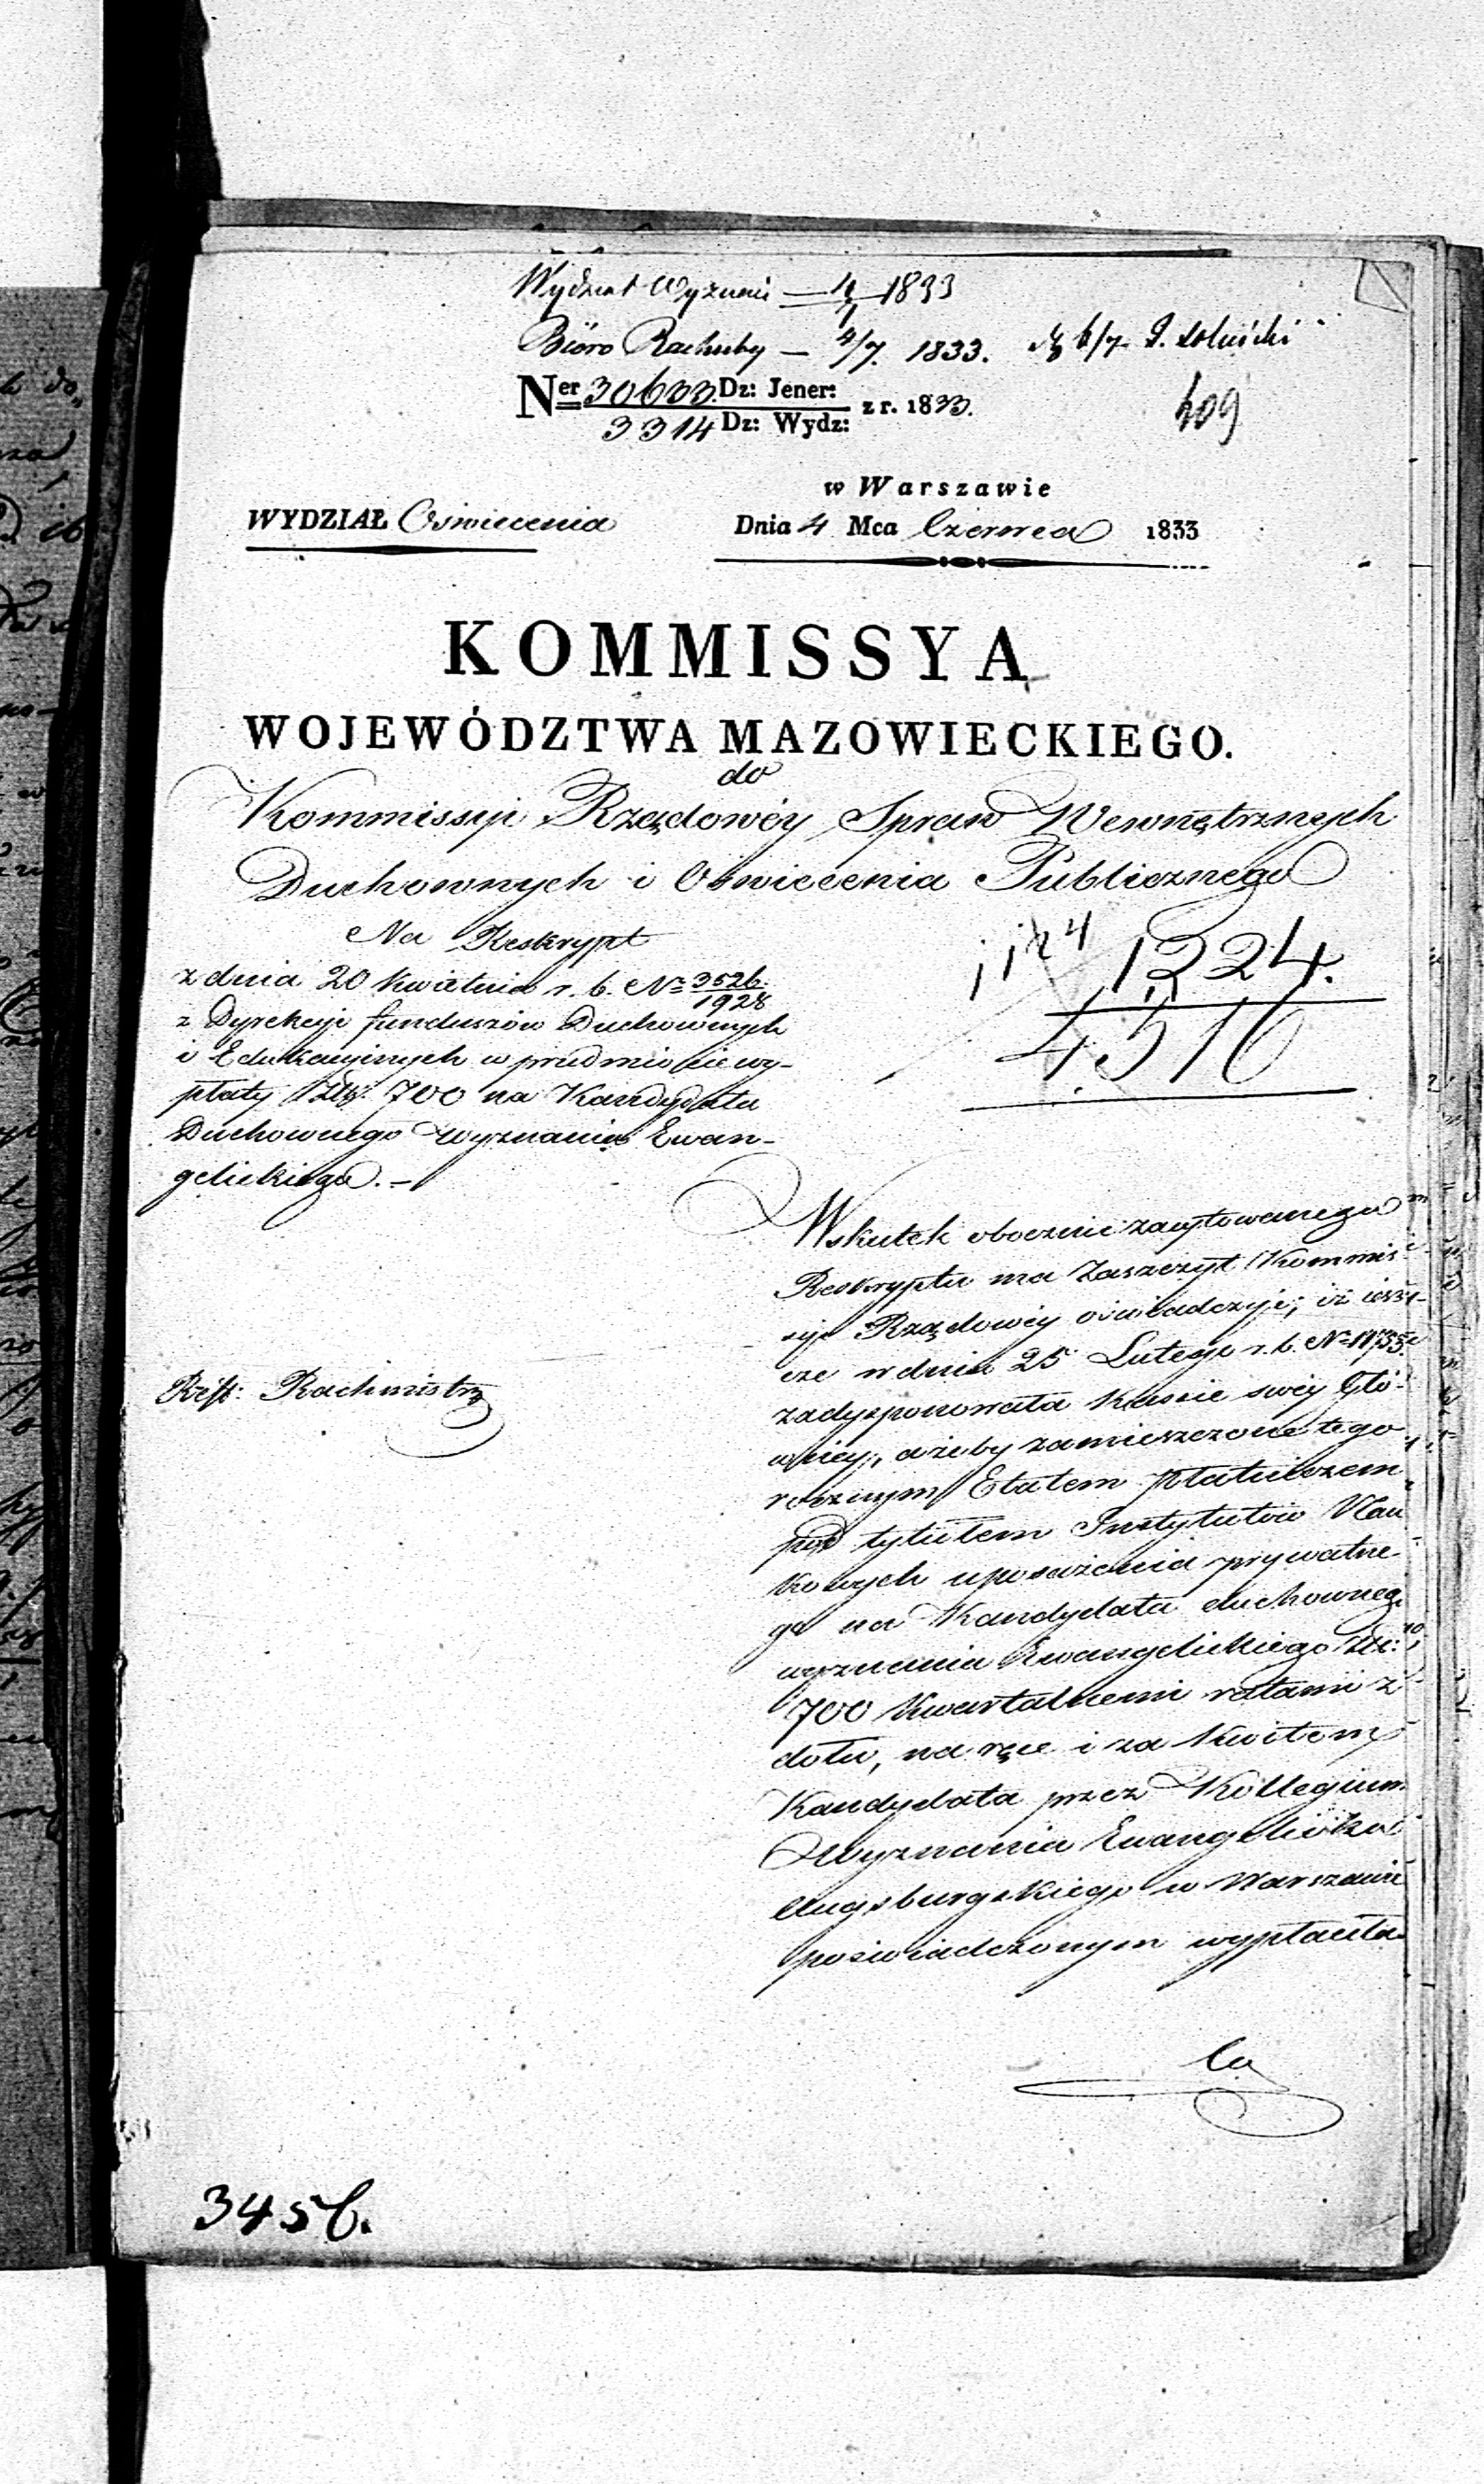 Wydział Wyznań — 1833
Bióro Rachuby — 4/7. 1833.
409
Ner 30633. Dz: Jener:
3314 Dz: Wydz: z r. 1833.
w Warszawie
WYDZIAŁ Oświecenia
Dnia 4 Mca Czerwca 1833
KOMMISSYA
WOJEWÓDZTWA MAZOWIECKIEGO.
do
Kommissyi Rządowéy Spraw Wewnętrznych
Duchownych i Oświecenia Publicznego
Na Reskrypt
z dnia 20 Kwietnia r. b. No 3526.
1928
z Dyrekcyi funduszów Duchownych
i Edukacyinych w przedmiocie wy-
płaty Złp. 700 na Kandydata
Duchownego Wyznania Ewan-
gelickiego. —
1224.
4516
Wskutek obocznie zacytowanego
Reskryptu ma Zaszczyt Kommis-
syi Rządowéy oświadczyć, iż iesz-
cze w dniu 25 Lutego r. b. No 11735.
zadysponowała Kassie swéy Głó-
wnéy, ażeby zamieszczone tego
rocznym Etatem płatniczem
pod tytułem Instytutów Nau
kowych uposażenia prywatne-
go na Kandydata duchowneg
wyznania Ewangelickiego Złp:
700 Kwartalnemi ratami z
dołu, na ręce i za Kwitem
Kandydata przez Kollegium
Wyznania Ewangelicko
Augsburgskiego w Warszawie
poświadczonym wypłacała
Refft: Rachmistrz
Co
3456.